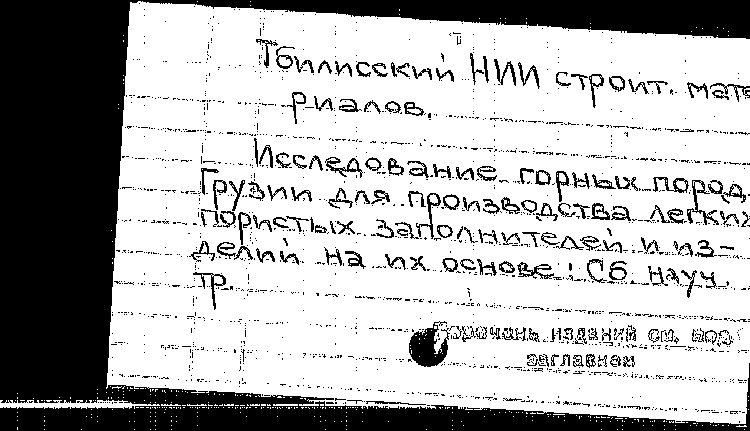 Т
Тбилисский НИИ строит. мате
риалов.
Исследование горных пород
Грузии для производства легких
пористых заполнителей и из-
делий на их основе: Сб. науч.
тр.
Перечень изданий см. под
заглавием